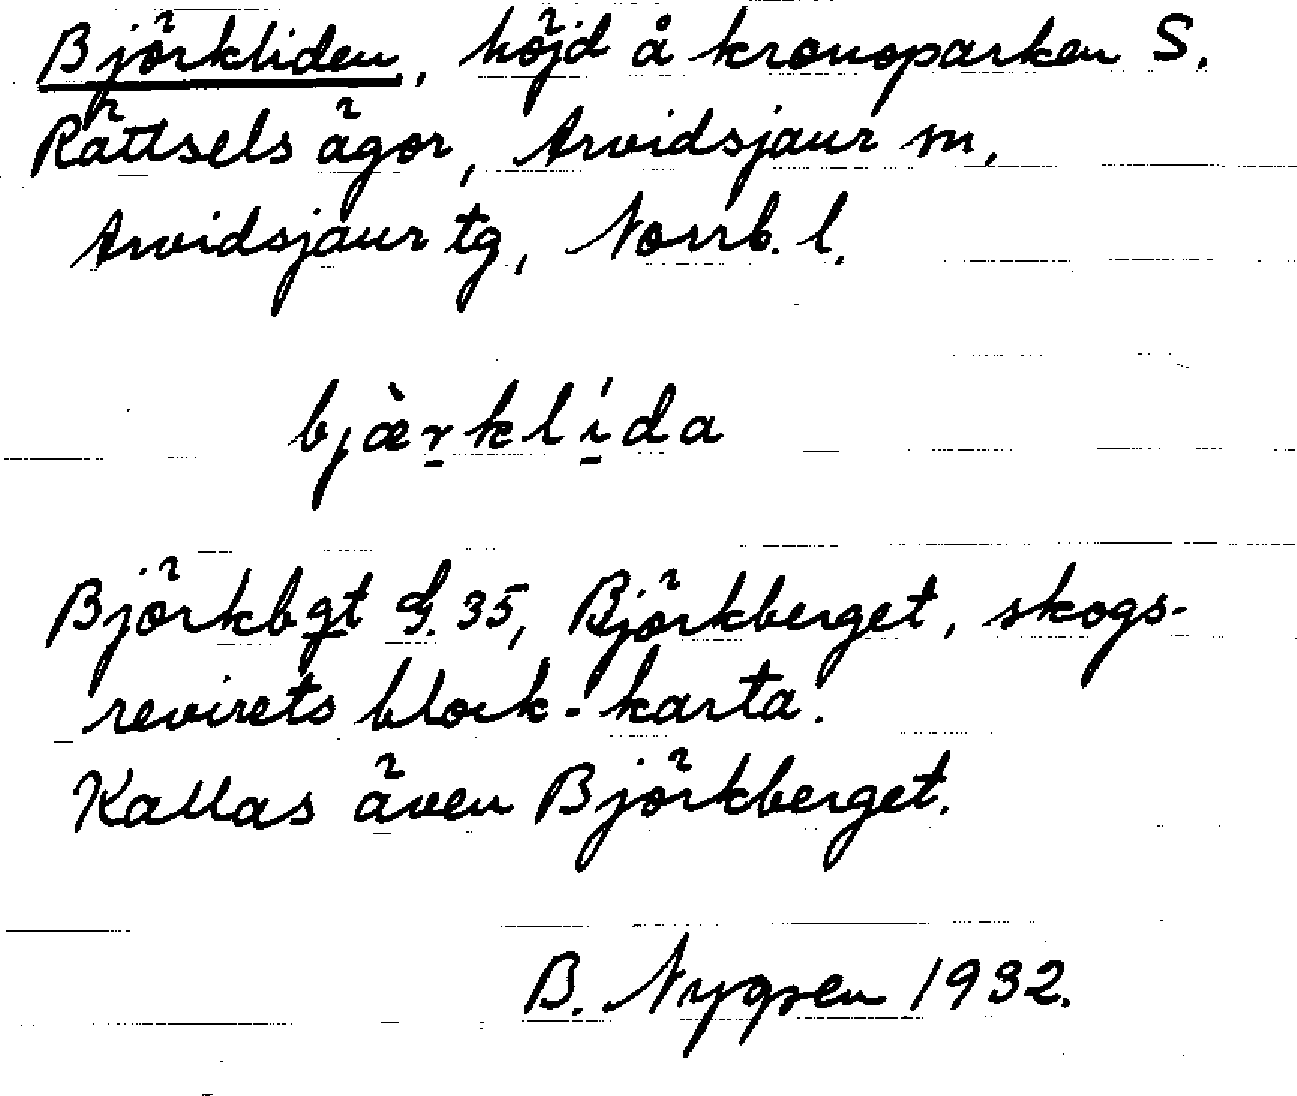 Björkliden, höjd å kronoparken S.
Rättsels ägor, Arvidsjaur sn,
Arvidsjaur tg, Norrb. l.
bjæ̀rklída
Björkbgt G. 35, Björkberget, skogs-
revirets block-karta.
Kallas även Björkberget.
B. Nygren 1932.